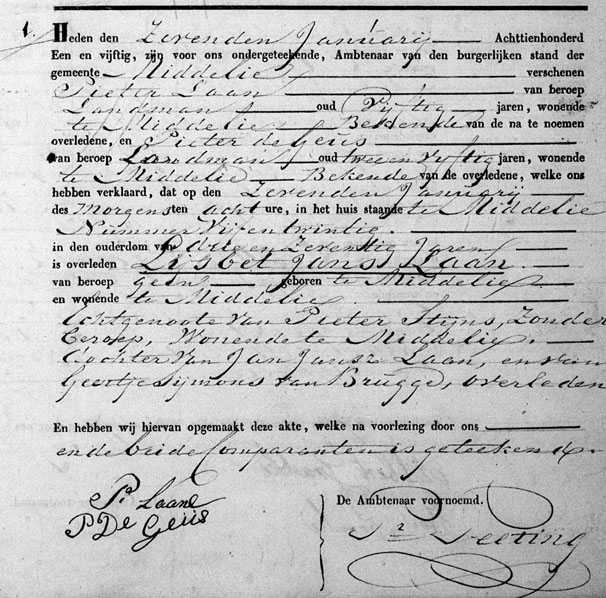 1.
Heden den Zevenden Januarij Achttienhonderd
Een en vijftig, zijn voor ons ondergeteekende, Ambtenaar van den burgerlijken stand der
gemeente Middelie verschenen
Pieter Laan van beroep
Landman oud Vijftig jaren, wonende
te Middelie Bekende van de na te noemen
overledene, en Pieter de Geus
van beroep Landman oud twee en vijftig jaren, wonende
te Middelie Bekende van de overledene, welke ons
hebben verklaard, dat op den Zevenden Januarij
des Morgens ten acht ure, in het huis staande te Middelie
Nummer Vijfentwintig
in den ouderdom van drie en Zeventig Jaren
is overleden Lijsbet Jansz Laan
van beroep geen geboren te Middelie
en wonende te Middelie
Echtgenoote van Pieter Stijns, Zonder
Beroep, Wonende te Middelie
dochter van Jan Jansz Laan, en van
Geertje Sijmons van Brugge, overleden
En hebben wij hiervan opgemaakt deze akte, welke na voorlezing door ons
en de beide Comparanten is geteekend
P. Laan
P De Geus
De Ambtenaar voornoemd.